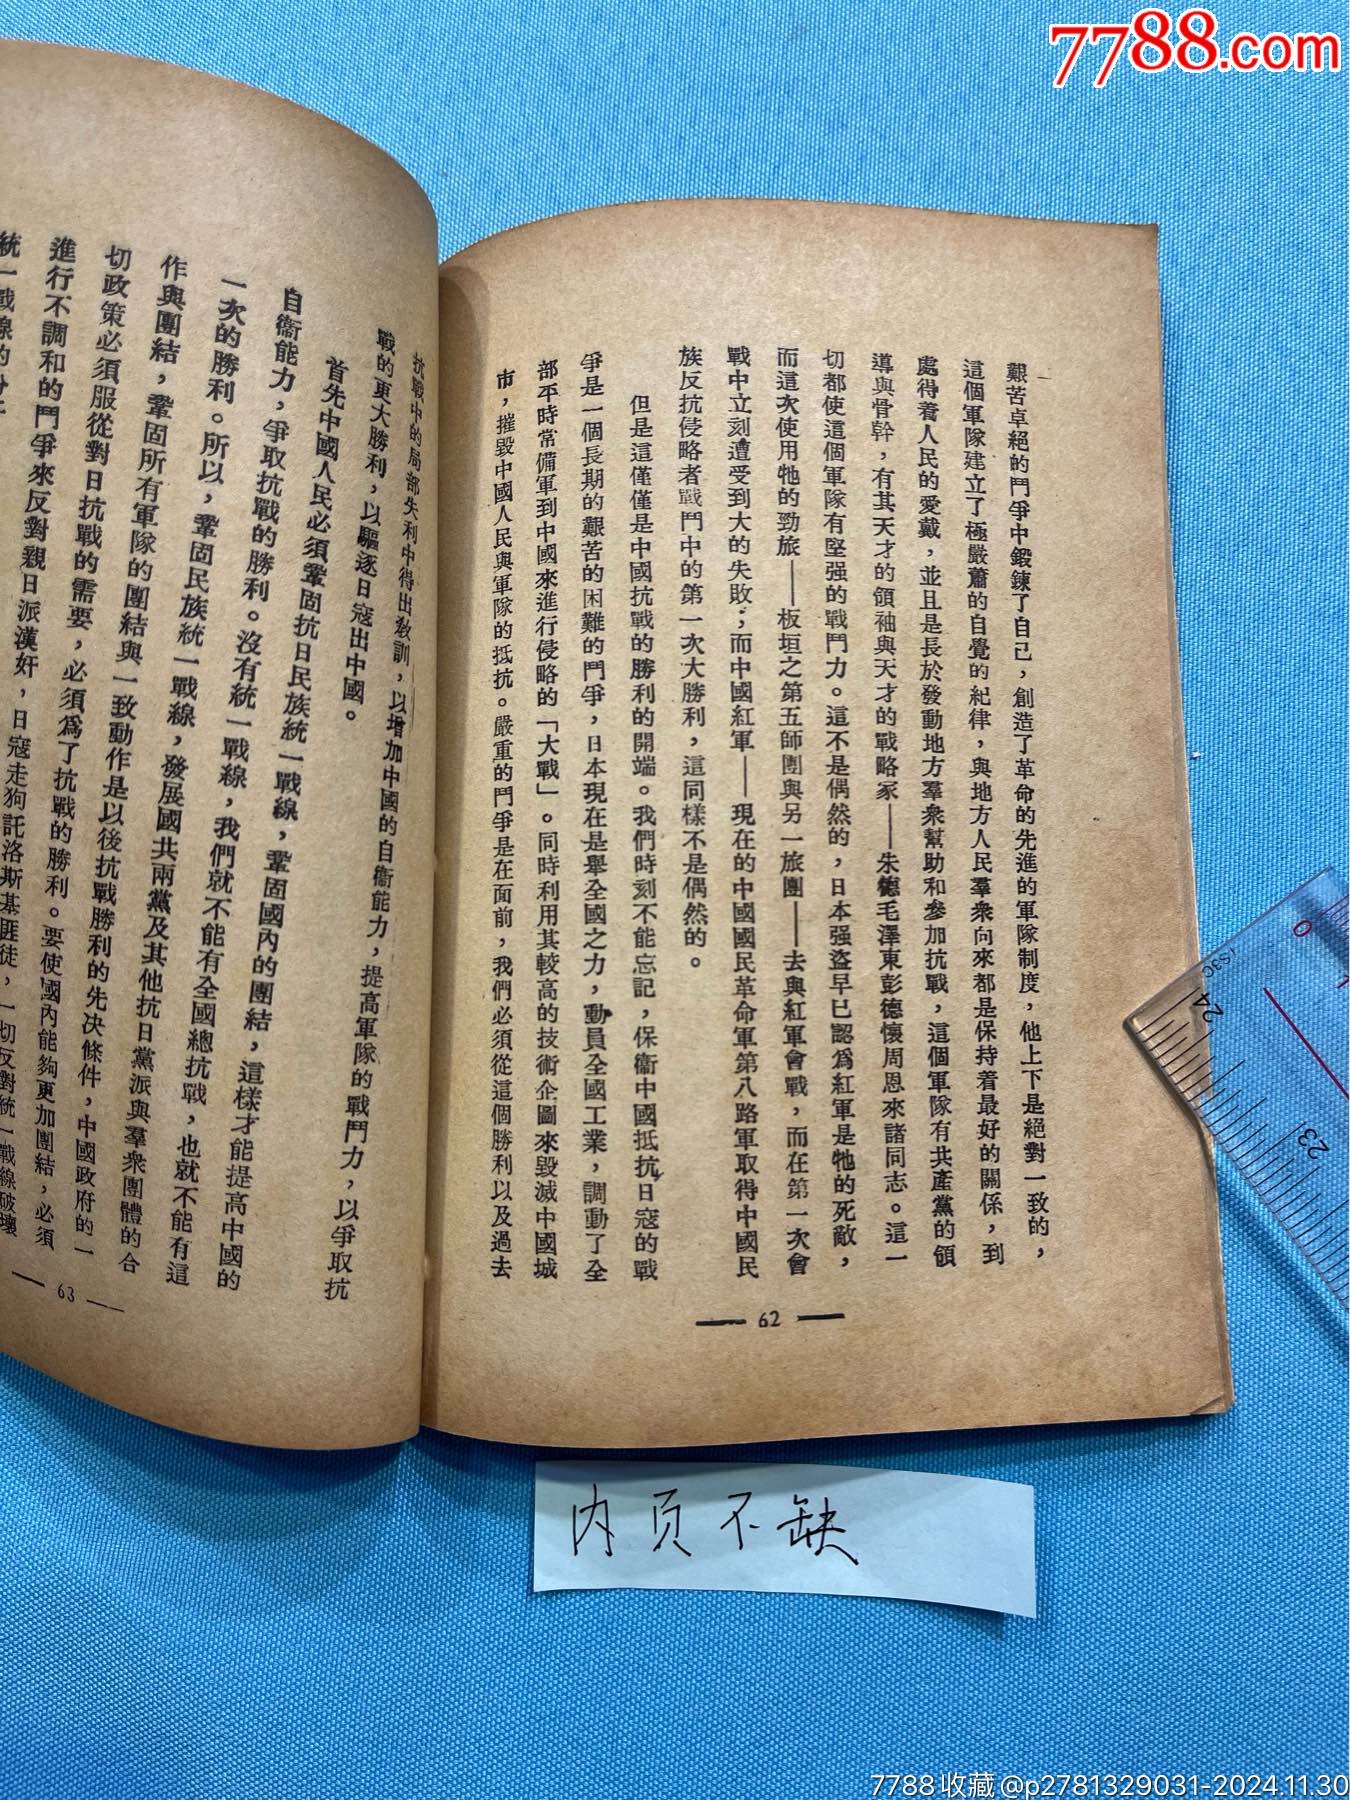 7788.com
艱苦卓絕的鬥爭中鍛鍊了自己，創造了革命的先進的軍隊制度，他上下是絕對一致的，
這個軍隊建立了極嚴肅的自覺的紀律，與地方人民羣衆向來都是保持着最好的關係，到
處得着人民的愛戴，並且是長於發動地方羣衆幫助和參加抗戰，這個軍隊有共產黨的領
導與骨幹，有其天才的領袖與天才的戰略家——朱德毛澤東彭德懷周恩來諸同志。這一
切都使這個軍隊有堅强的戰鬥力。這不是偶然的，日本强盜早已認爲紅軍是牠的死敵，
而這次使用牠的勁旅——板垣之第五師團與另一旅團——去與紅軍會戰，而在第一次會
戰中立刻遭受到大的失敗；而中國紅軍——現在的中國國民革命軍第八路軍取得中國民
族反抗侵略者戰鬥中的第一次大勝利，這同樣不是偶然的。
但是這僅僅是中國抗戰的勝利的開端。我們時刻不能忘記，保衞中國抵抗日寇的戰
爭是一個長期的艱苦的困難的鬥爭，日本現在是舉全國之力，動員全國工業，調動了全
部平時常備軍到中國來進行侵略的「大戰」。同時利用其較高的技術企圖來毀滅中國城
市，摧毀中國人民與軍隊的抵抗。嚴重的鬥爭是在面前，我們必須從這個勝利以及過去
— 62 —
抗戰中的局部失利中得出敎訓，以增加中國的自衞能力，提高軍隊的戰鬥力，以爭取抗
戰的更大勝利，以驅逐日寇出中國。
首先中國人民必須鞏固抗日民族統一戰線，鞏固國內的團結，這樣才能提高中國的
自衞能力，爭取抗戰的勝利。沒有統一戰線，我們就不能有全國總抗戰，也就不能有這
一次的勝利。所以，鞏固民族統一戰線，發展國共兩黨及其他抗日黨派與羣衆團體的合
作與團結，鞏固所有軍隊的團結與一致動作是以後抗戰勝利的先決條件，中國政府的一
切政策必須服從對日抗戰的需要，必須爲了抗戰的勝利。要使國內能夠更加團結，必須
進行不調和的鬥爭來反對親日派漢奸，日寇走狗託洛斯基匪徒，一切反對統一戰線破壞
統一戰線的分子
— 63 —
内页不缺
0
24
23
7788收藏@p2781329031-2024.11.30